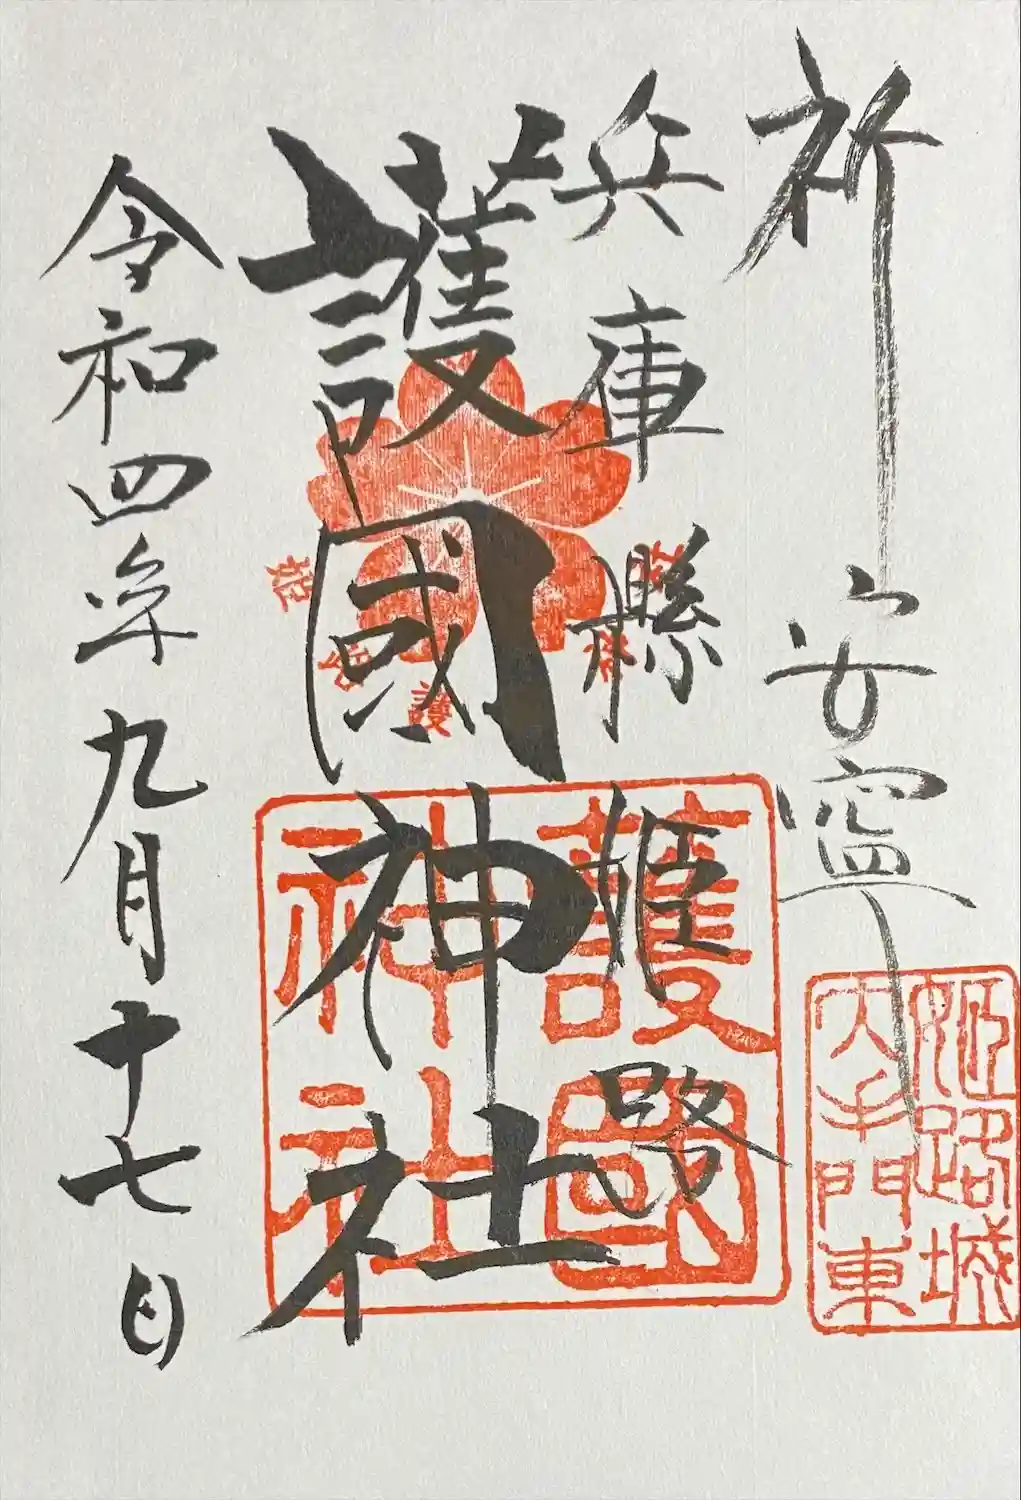 祈 安寧
兵庫縣 姫路
護國神社
令和四年九月十七日
護國
神社
姫路城
大手門東